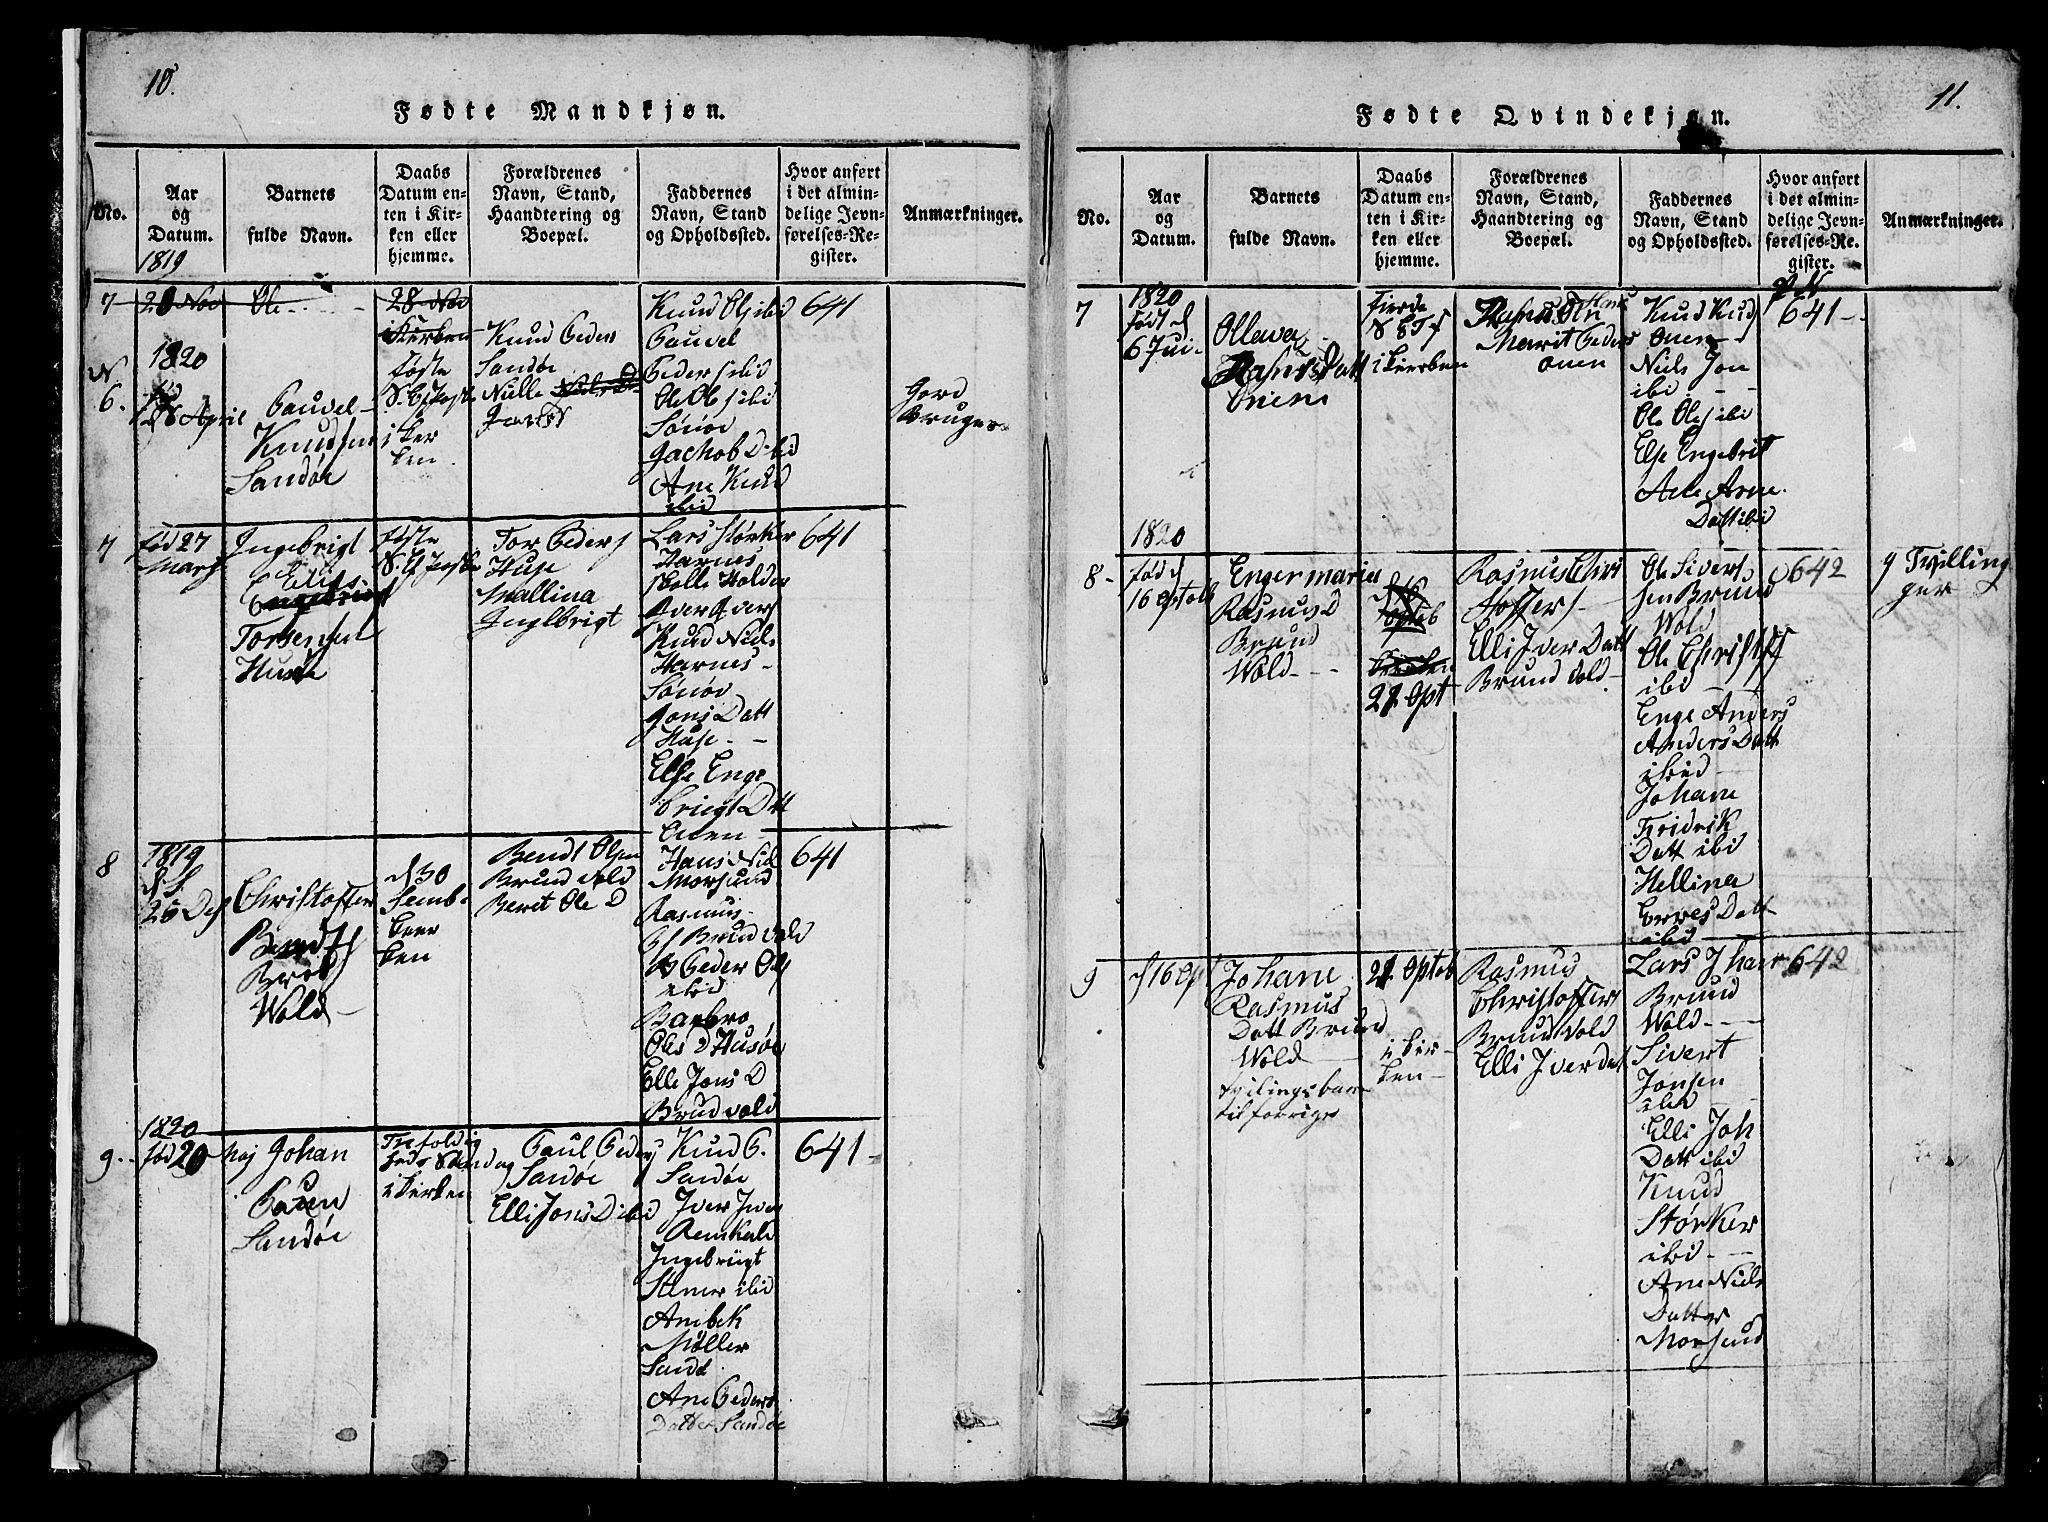 10.
Fødte Mandkjøn.
No.
Aar
og
Datum.
1819
Barnets
fulde Navn.
Daabs
Datum en-
ten i Kir-
ken eller
hjemme.
Forældrenes
Navn, Stand,
Haandtering og
Boepæl.
Faddernes
Navn, Stand
og Opholdssted.
Hvor anført
i det almin-
delige Jevn-
førelses-Re-
gister.
Anmærkninger.
7
20 Nov
Ole
28 Nov
i Kirken
6.
1820
fød
April
Pauvel
Knudsen
Sandøe
føste
i Ker
ken
Knud Peders
Sandøe
Nille
Knud Ols ibid
Pauvel
Peders ibid
Ole Ols ibid
Sønøe
Jachob D ibid
Ane Knud
ibid
641
Gord
Bruger
7
fød 27
Mars
Ingebrigt
Elias
Torsensen
Husøe
føste
Tor Peders
Huse
Mallina
Ingelbrigt
Lars Størker
Harnes
Pelle Holder
Iver Ivers
Knud Niels
Harnes
Sønøe
Jons Datt
Huse
Else Enge
brigt Dtt
Onen
641
8
1819
26 Des
Christoffer
Bendts
Brud
Wold
d 30
Semb
keer
ken
Bendt Olsen
Brud vold
Beret Ole D
Hans Niel
Morsund
Rasmus
Brud vold
Peder Ols
ibid
Barbro
Oles D Husøe
Elle Jons D
Brud vold
641
9.
1820
fød 20 Maj
Johan
Sandøe
Trefoldig
heds Søndag
i Kirken
Paul Peders
Sandøe
Elli Jons D ibid
Knud P.
Sandøe
Iver Ivers
Remkeld
Ingebrigt
Stener ibid
Anebek
Møller
Sande
Ane Peders
Datter Sandøe
641
11.
Fødte Qvindekjøn.
No.
Aar
og
Datum.
Barnets
fulde Navn.
Daabs
Datum en-
ten i Kir-
ken eller
hjemme.
Forældrenes
Navn, Stand,
Haandtering og
Boepæl.
Faddernes
Navn, Stand
og Opholdssted.
Hvor anført
i det almin-
delige Jevn-
førelses-Re-
gister.
Anmærkninger.
7
1820
født d
6 Jui
Ollava
Hans Datt
Onen
fierde
i Keerken
Marit Peders
Onen
Knud Knud
Onen
Niels Jon
ibid
Ole Ols ibid
Else Engebrit
Ane Arne
Datt ibid
641
8
1820
fød d
16 Optob
Engermaries
Rasmus D
Brund
Wold
21 Opt
Rasmus Chris
toffers
Elli Iver Datt
Brund vold
Ole Sivert
sen Brund
Wold
Ole Christofs
ibid
Enge Anders
Anders Datt
ibid
Johane
Fridrik
Datt ibid
Hellina
Erres Datt
ibid
642
Tvilling
ger
9
d 16 Opt
Johane
Rasmus
Datt Brund
Wold
tvilingsbarn
til forrige
21 Optob
i kir
ken
Rasmus
Christoffers
Brund Vold
Elli Iver Datt
Lars Johan
Brund
Wold
Sivert
Jonsen
ibid
Elli Joh
Datt ibid
Knud
Størker
ibid
Ane Niels
Datter
Morsund
642